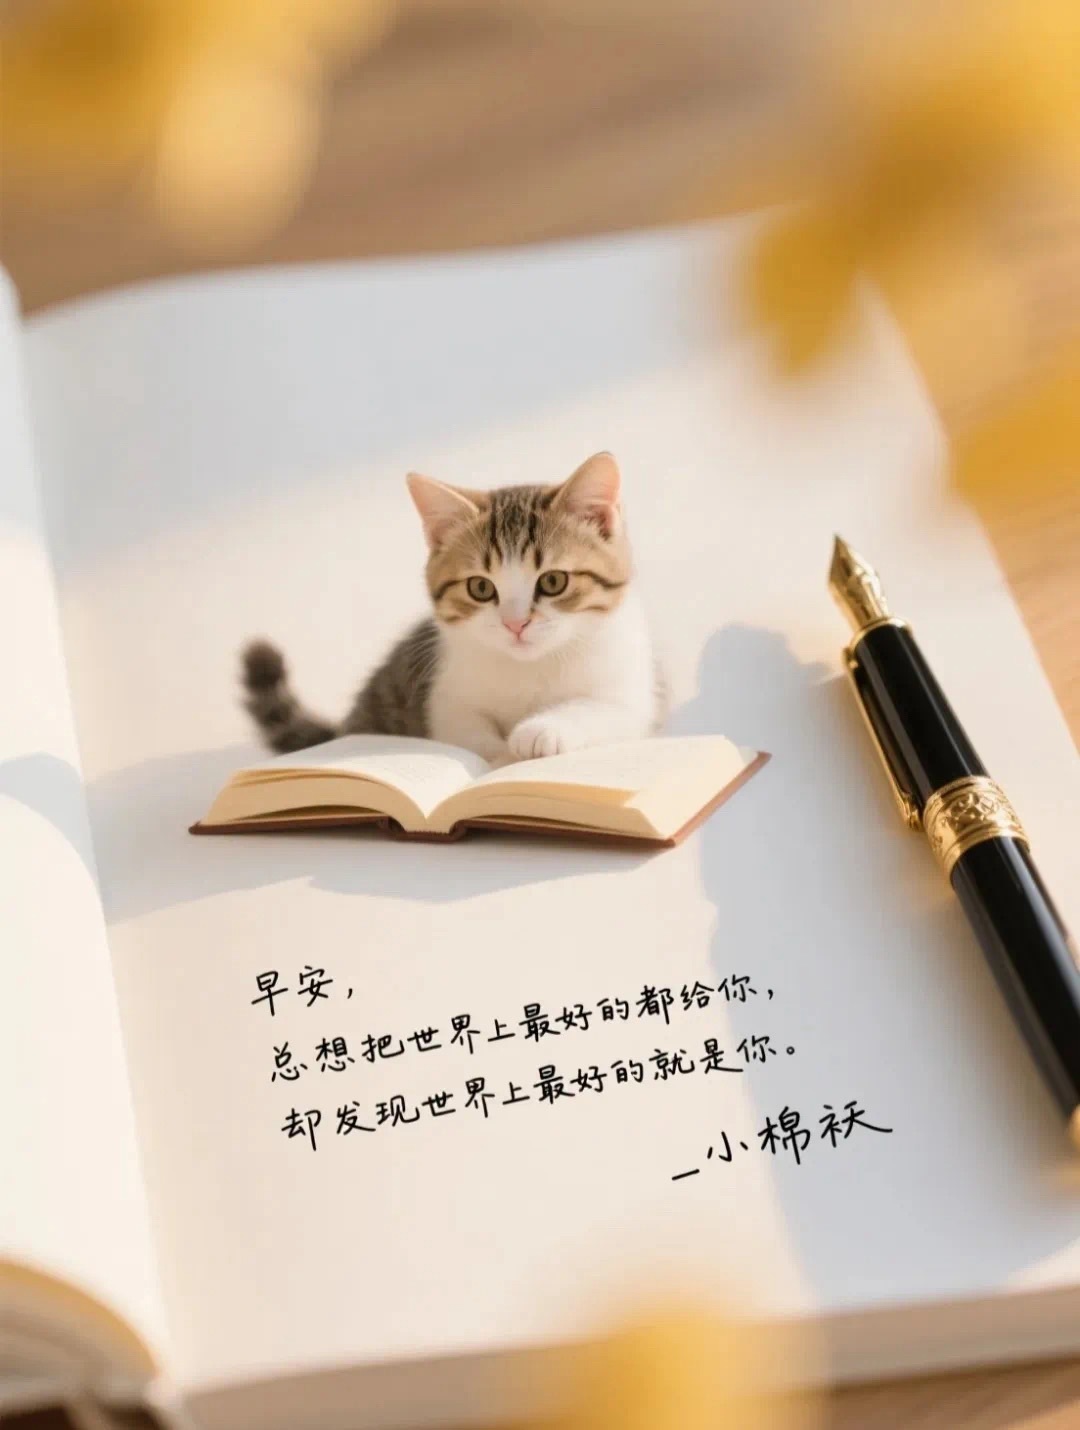 早安，
总想把世界上最好的都给你，
却发现世界上最好的就是你。
_小棉袄